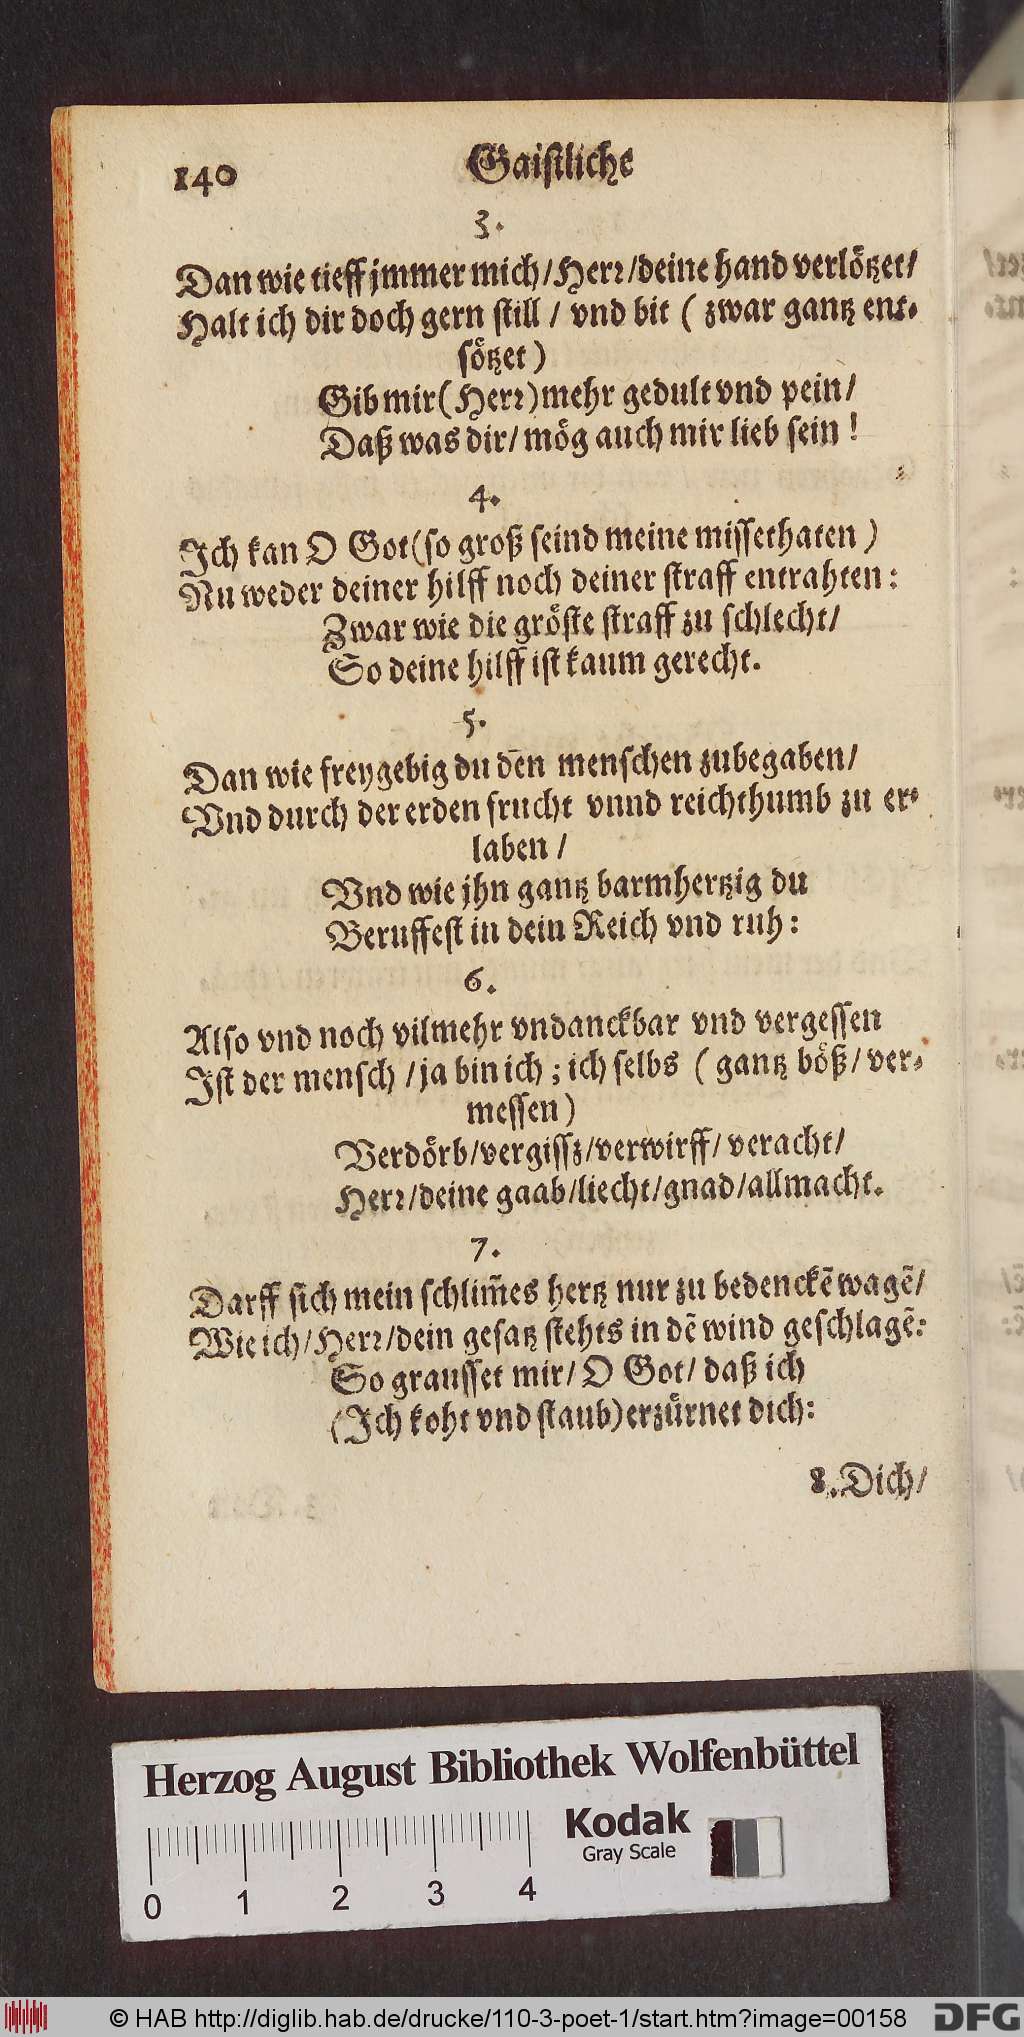 140 Gaistliche
3.
Dan wie tieff jmmer mich/Herr/deine hand verlötzet/
Halt ich dir doch gern still / vnd bit ( zwar gantz ent-
sötzet)
Gib mir (Herr) mehr gedult vnd pein/
Daß was dir/ mög auch mir lieb sein!
4.
Ich kan O Got (so groß seind meine missethaten)
Nu weder deiner hilff noch deiner straff entrahten:
Zwar wie die gröste straff zu schlecht/
So deine hilff ist kaum gerecht.
5.
Dan wie freygebig du den menschen zubegaben/
Vnd durch der erden frucht vnnd reichthumb zu er-
laben /
Vnd wie jhn gantz barmhertzig du
Beruffest in dein Reich vnd ruh:
6.
Also vnd noch vilmehr vndanckbar vnd vergessen
Ist der mensch /ja bin ich ; ich selbs ( gantz böß/ ver-
messen)
Verdörb/vergissz/verwirff/ veracht/
Herr/deine gaab/liecht/gnad/allmacht.
7.
Darff sich mein schlim̃es hertz nur zu bedenckẽ wagẽ/
Wie ich/Herr/dein gesatz stehts in dẽ wind geschlagẽ:
So grausset mir/ O Got/ daß ich
(Ich koht vnd staub) erzürnet dich:
8. Dich/
Herzog August Bibliothek Wolfenbüttel
Kodak
Gray Scale
0 1 2 3 4
© HAB http://diglib.hab.de/drucke/110-3-poet-1/start.htm?image=00158 DFG